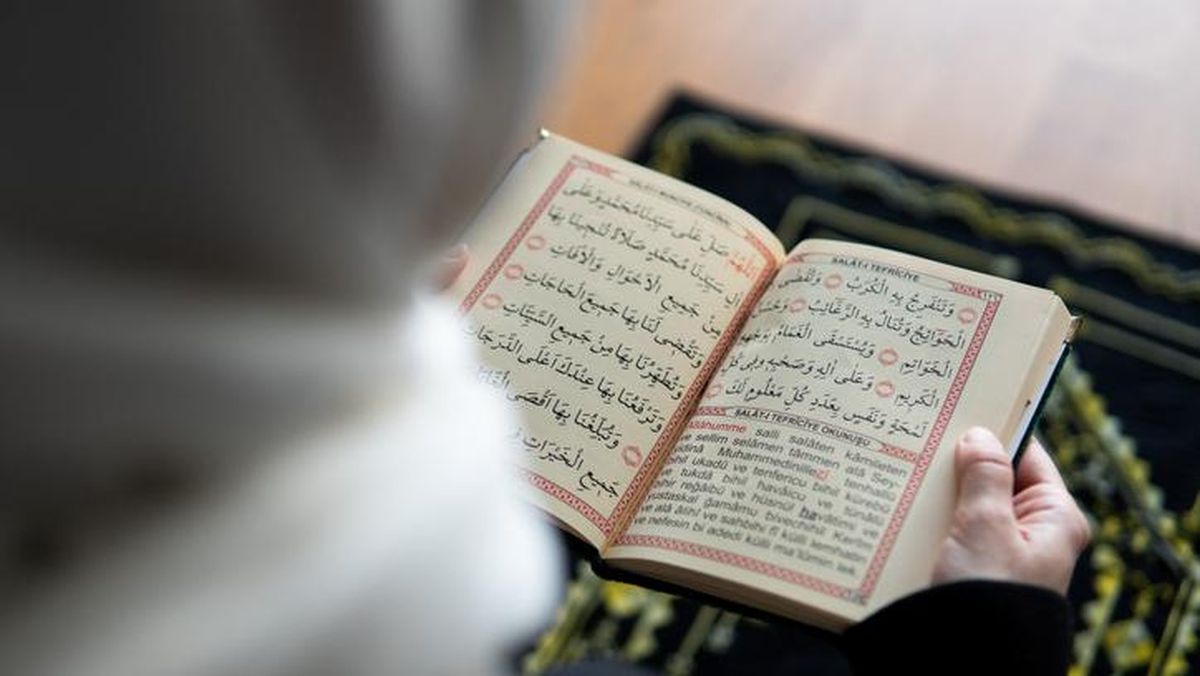 اَللّٰهُمَّ صَلِّ عَلٰى سَيِّدِنَا مُحَمَّدٍ وَعَلٰى
اٰلِ سَيِّدِنَا مُحَمَّدٍ صَلَاةً تُنْجِينَا بِهَا
مِنْ جَمِيعِ الْاَهْوَالِ وَالْاٰفَاتِ
وَتَقْضِى لَنَا بِهَا جَمِيعَ الْحَاجَاتِ
وَتُطَهِّرُنَا بِهَا مِنْ جَمِيعِ السَّيِّئَاتِ
وَتَرْفَعُنَا بِهَا عِنْدَكَ اَعْلَى الدَّرَجَاتِ
وَتُبَلِّغُنَا بِهَا اَقْصَى
جَمِيعِ الْخَيْرَاتِ
SALÂT-I TEFRİCİYE
وَتَنْفَرِجُ بِهِ الْكُرَبُ وَتُقْضٰى
الْحَوَائِجُ وَتُنَالُ بِهِ الرَّغَائِبُ وَحُسْنُ
الْخَوَاتِمِ وَيُسْتَسْقَى الْغَمَامُ بِوَجْهِهِ
الْكَرِيمِ وَعَلٰى اٰلِهِ وَصَحْبِهِ فِى كُلِّ
لَمْحَةٍ وَنَفَسٍ بِعَدَدِ كُلِّ مَعْلُومٍ لَكَ
SALÂT-I TEFRİCİYE OKUNUŞU
salli salâten kâmileten
ve sellim selâmen tâmmen alâ Sey-
Muhammedinillezî tenhallü
bihil ukadü ve tenfericu bihil kürebü
ve tukdâ bihil havâicu ve tünâlü
reğâibü ve hüsnül havâtimi ve
yustaskal ğamâmu bivechihil Kerim
ve alâ âlihi ve sahbihi fî külli lemhatin
ve nefesin bi adedi külli ma'lûmin lek